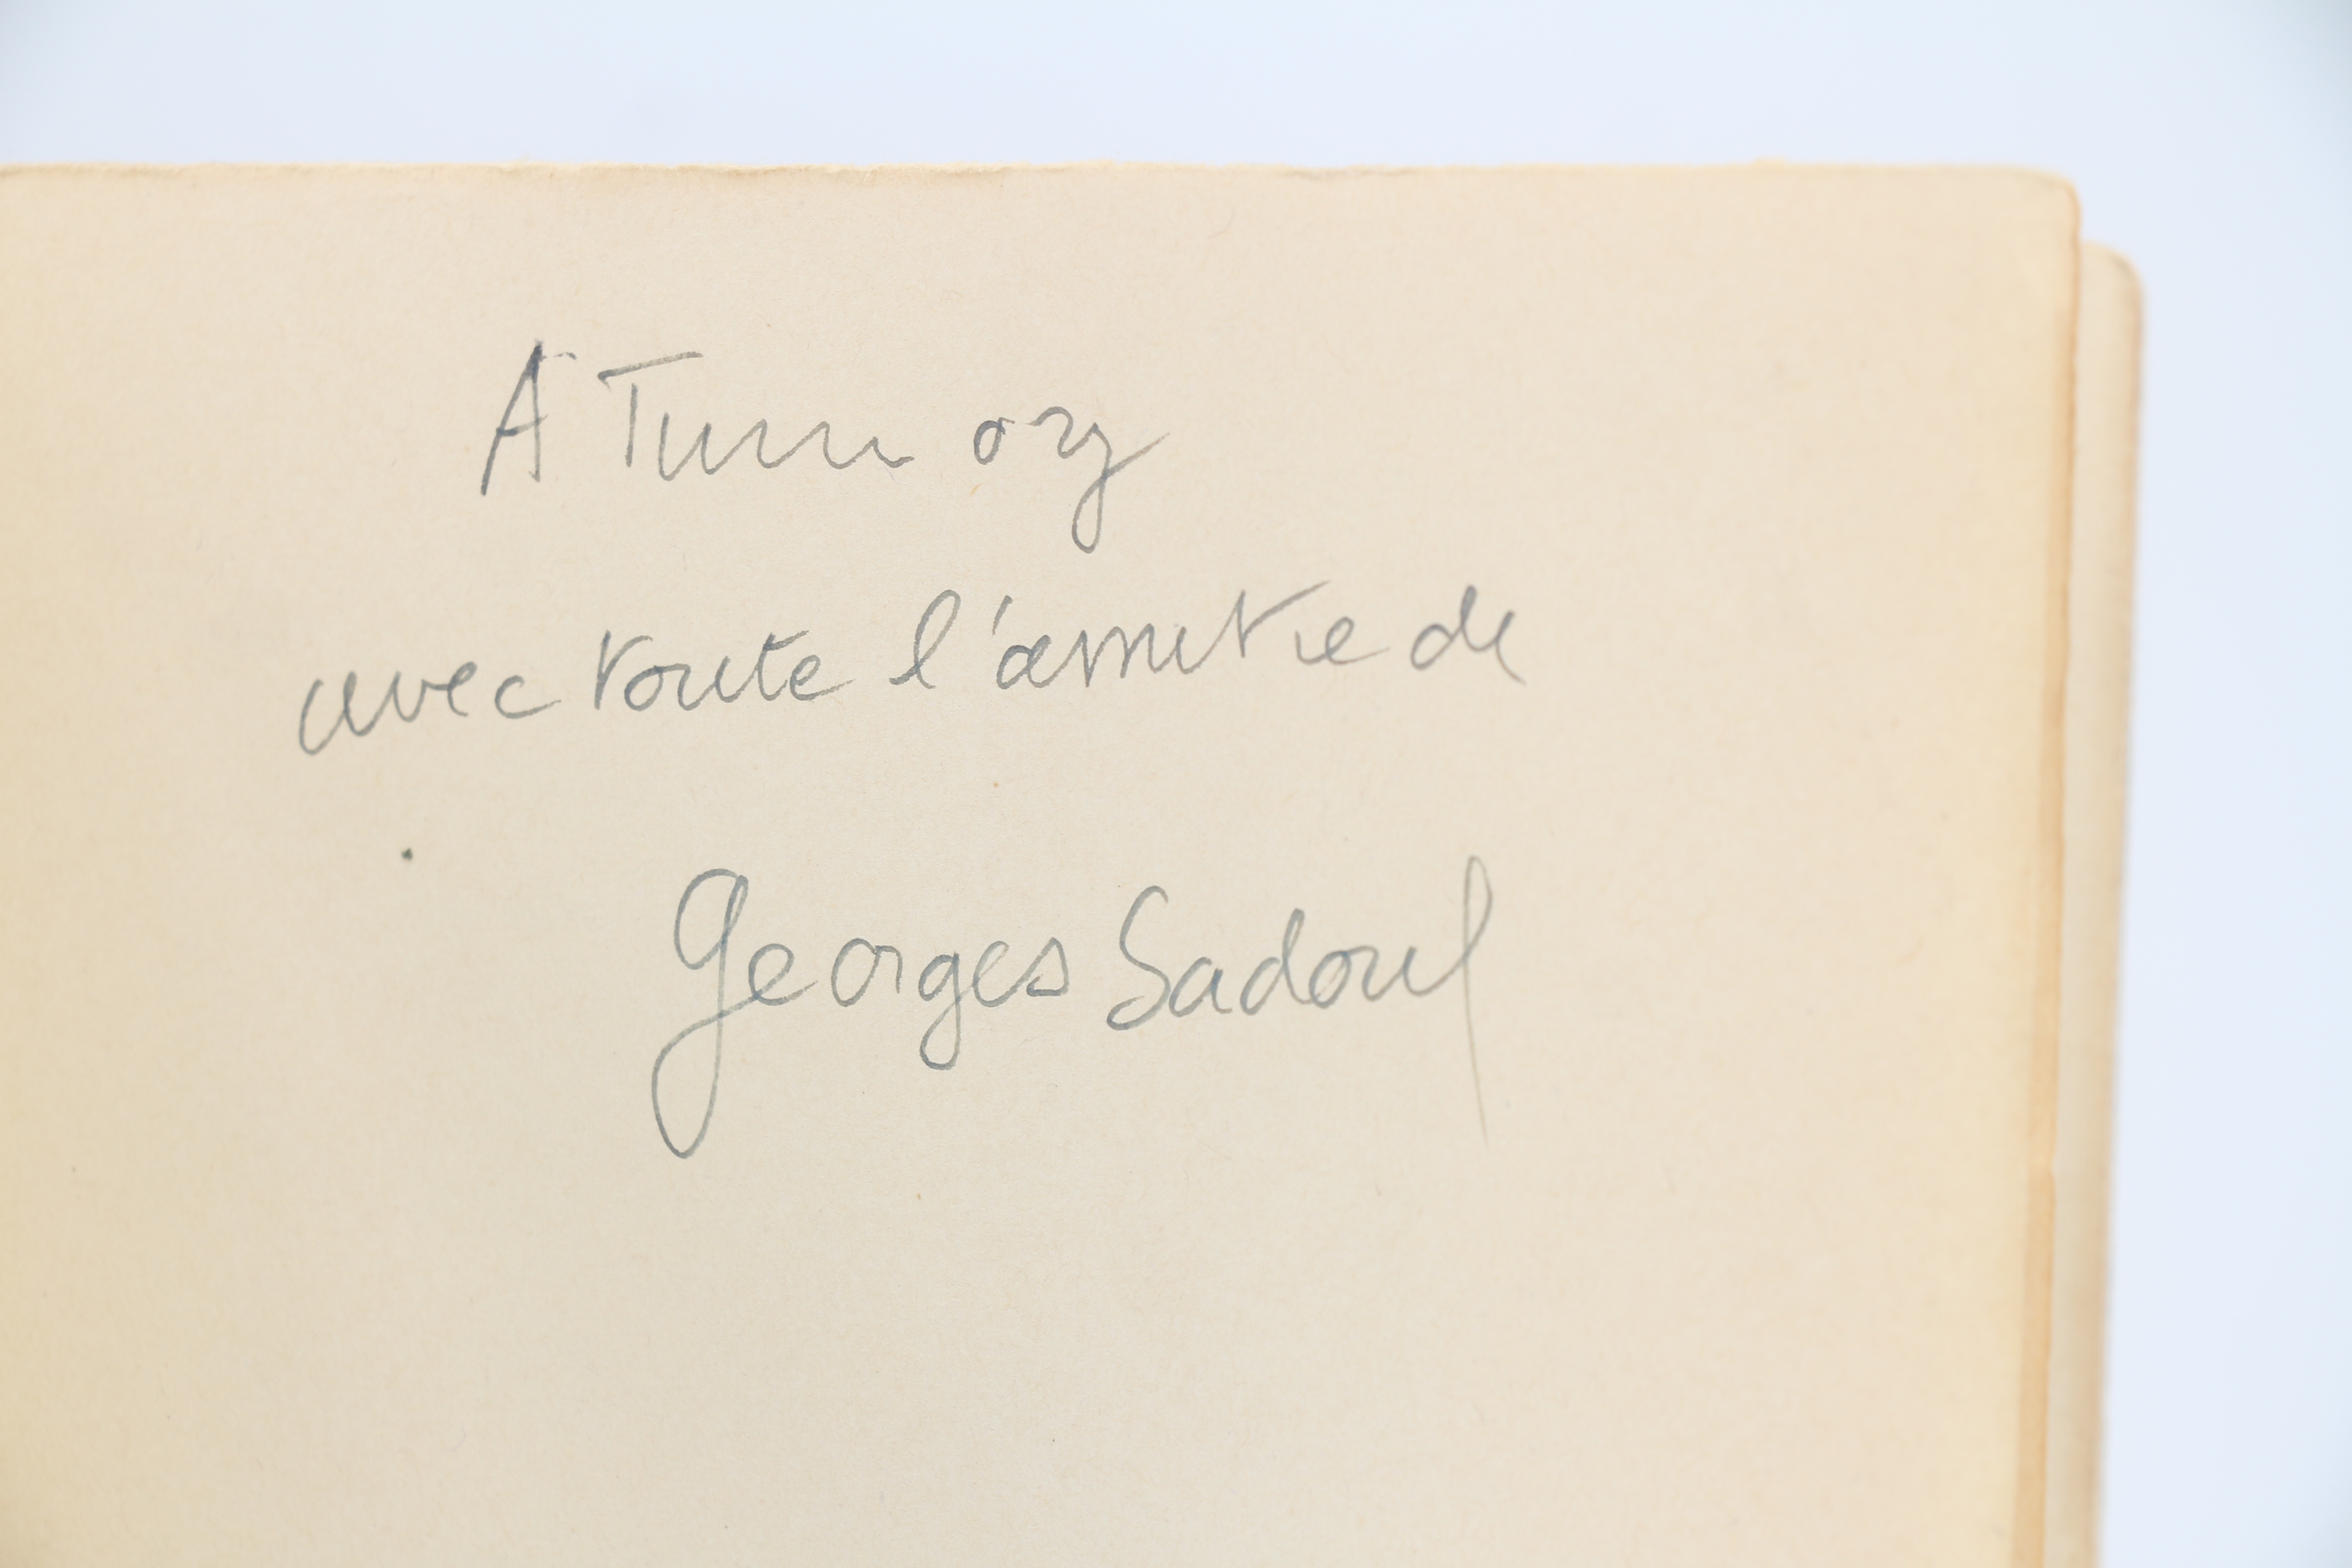 A Timmory
avec toute l'amitie de
Georges Sadoul